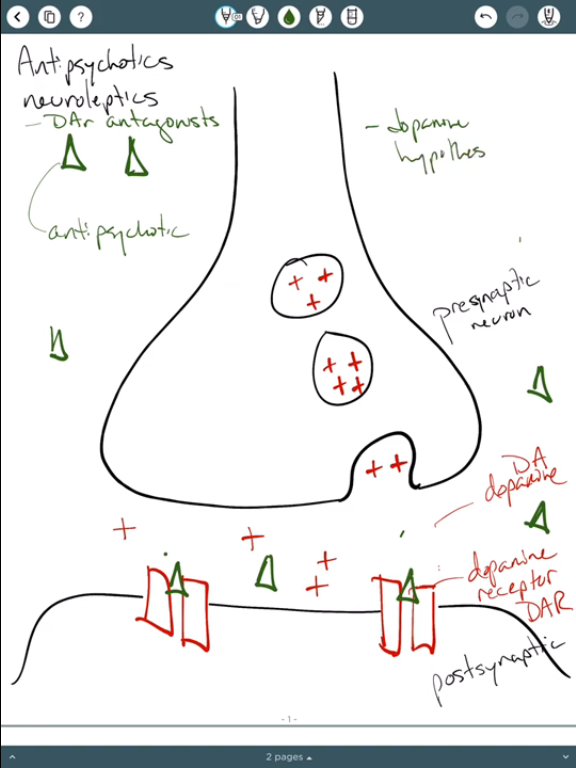 Antipsychotics
neuroleptics
- DAr antagonists
antipsychotic
- dopamine
hypothes
presynaptic
neuron
DA
dopamine
dopamine
receptor
DAR
postsynaptic
- 1 -
2 pages